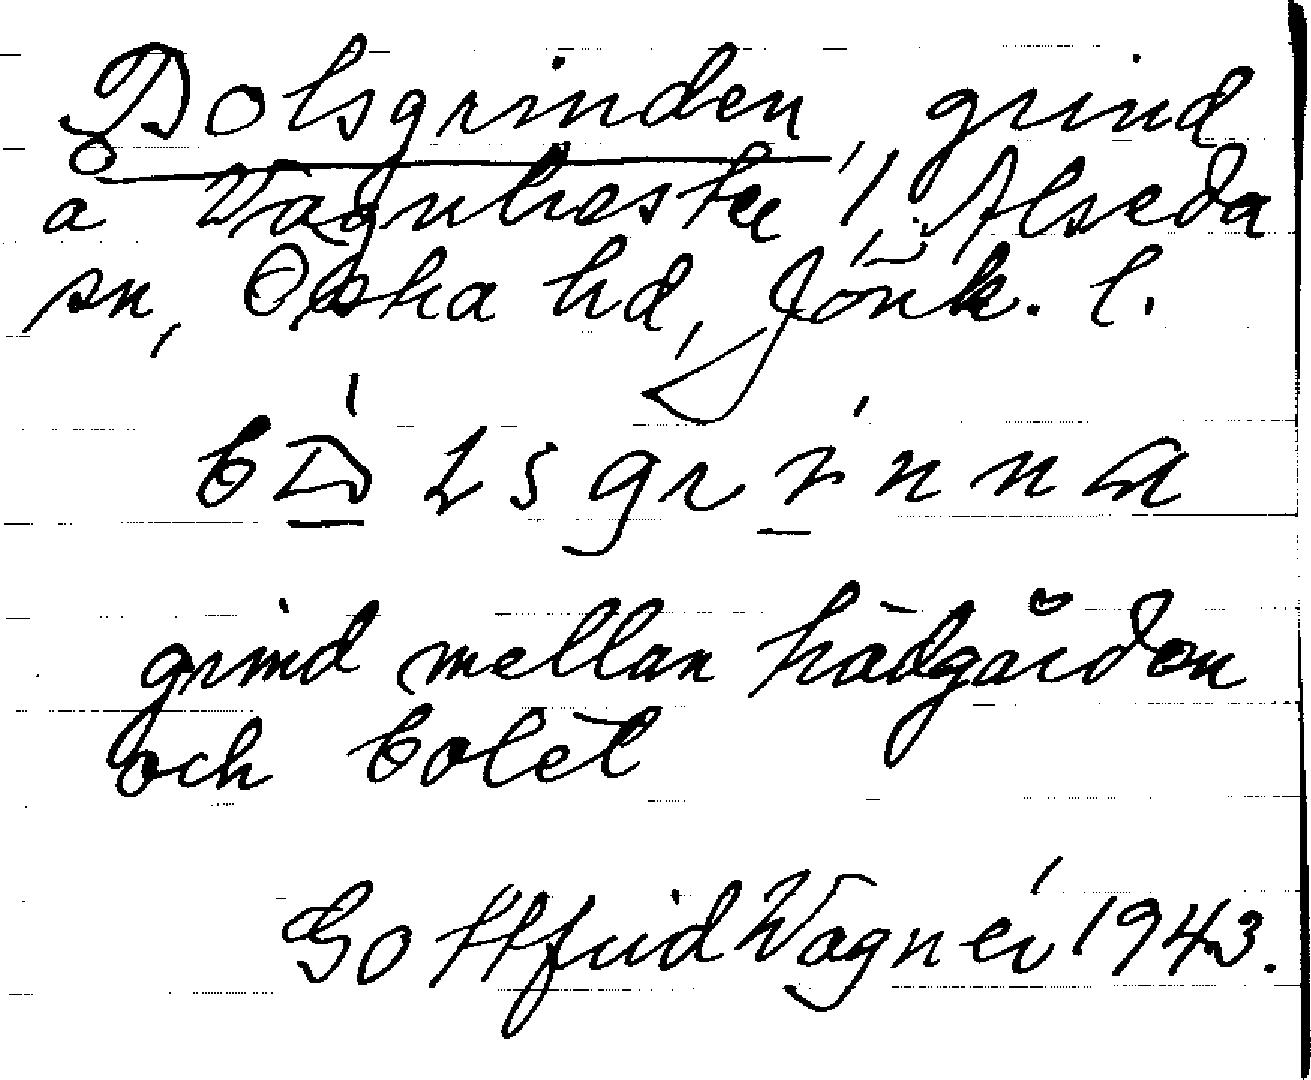 Bolsgrinden, grind
å Vägnhester i Alseda
sn, Östra hd, Jönk. l.
bɷlsgrinna
grind mellan hädgården
och bolet
Gottfrid Vagnér 1943.